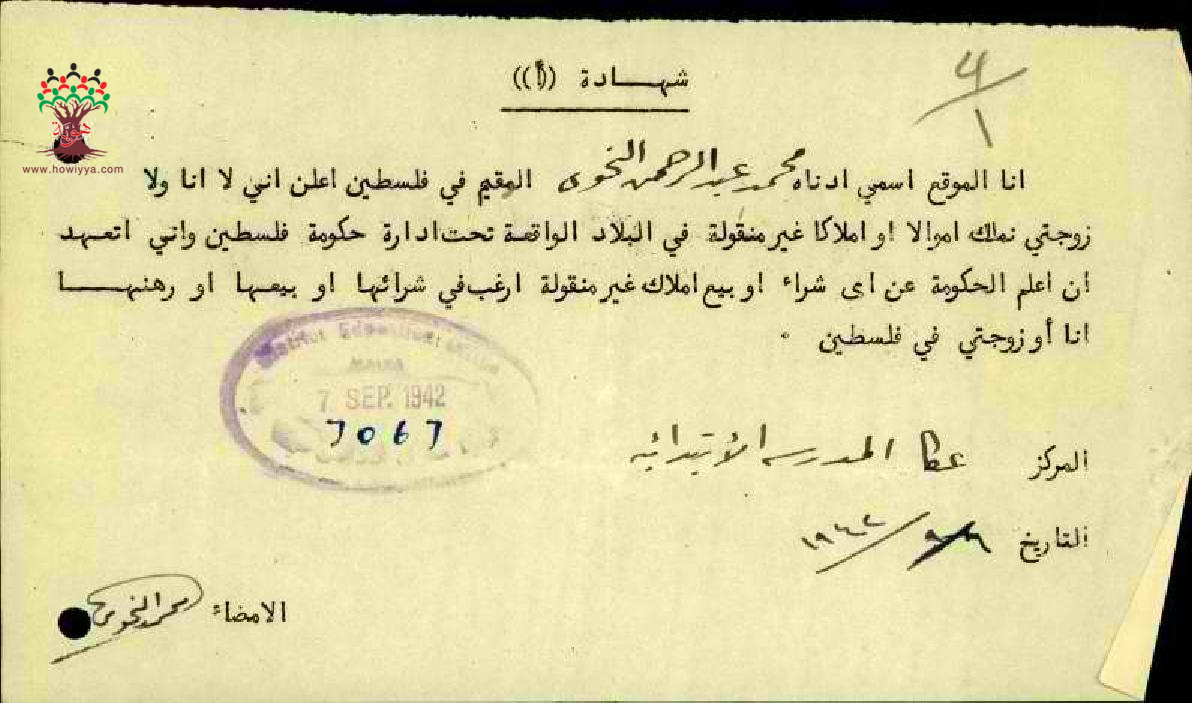 شهادة ((أ))
٤/١
هوية
www.howiyya.com
انا الموقع اسمي ادناه محمد عبد الرحمن النحوي المقيم في فلسطين اعلن اني لا انا ولا
زوجتي نملك اموالا او املاكا غير منقولة في البلاد الواقعة تحت ادارة حكومة فلسطين واني اتعهد
ان اعلم الحكومة عن اى شراء او بيع املاك غير منقولة ارغب في شرائها او بيعها او رهنها
انا أو زوجتي في فلسطين .
District Education Office
7 SEP. 1942
المركز عكا المدرسه الابتدائيه
التاريخ ١٩٤٢/٩/
الامضاء محمد النحوي